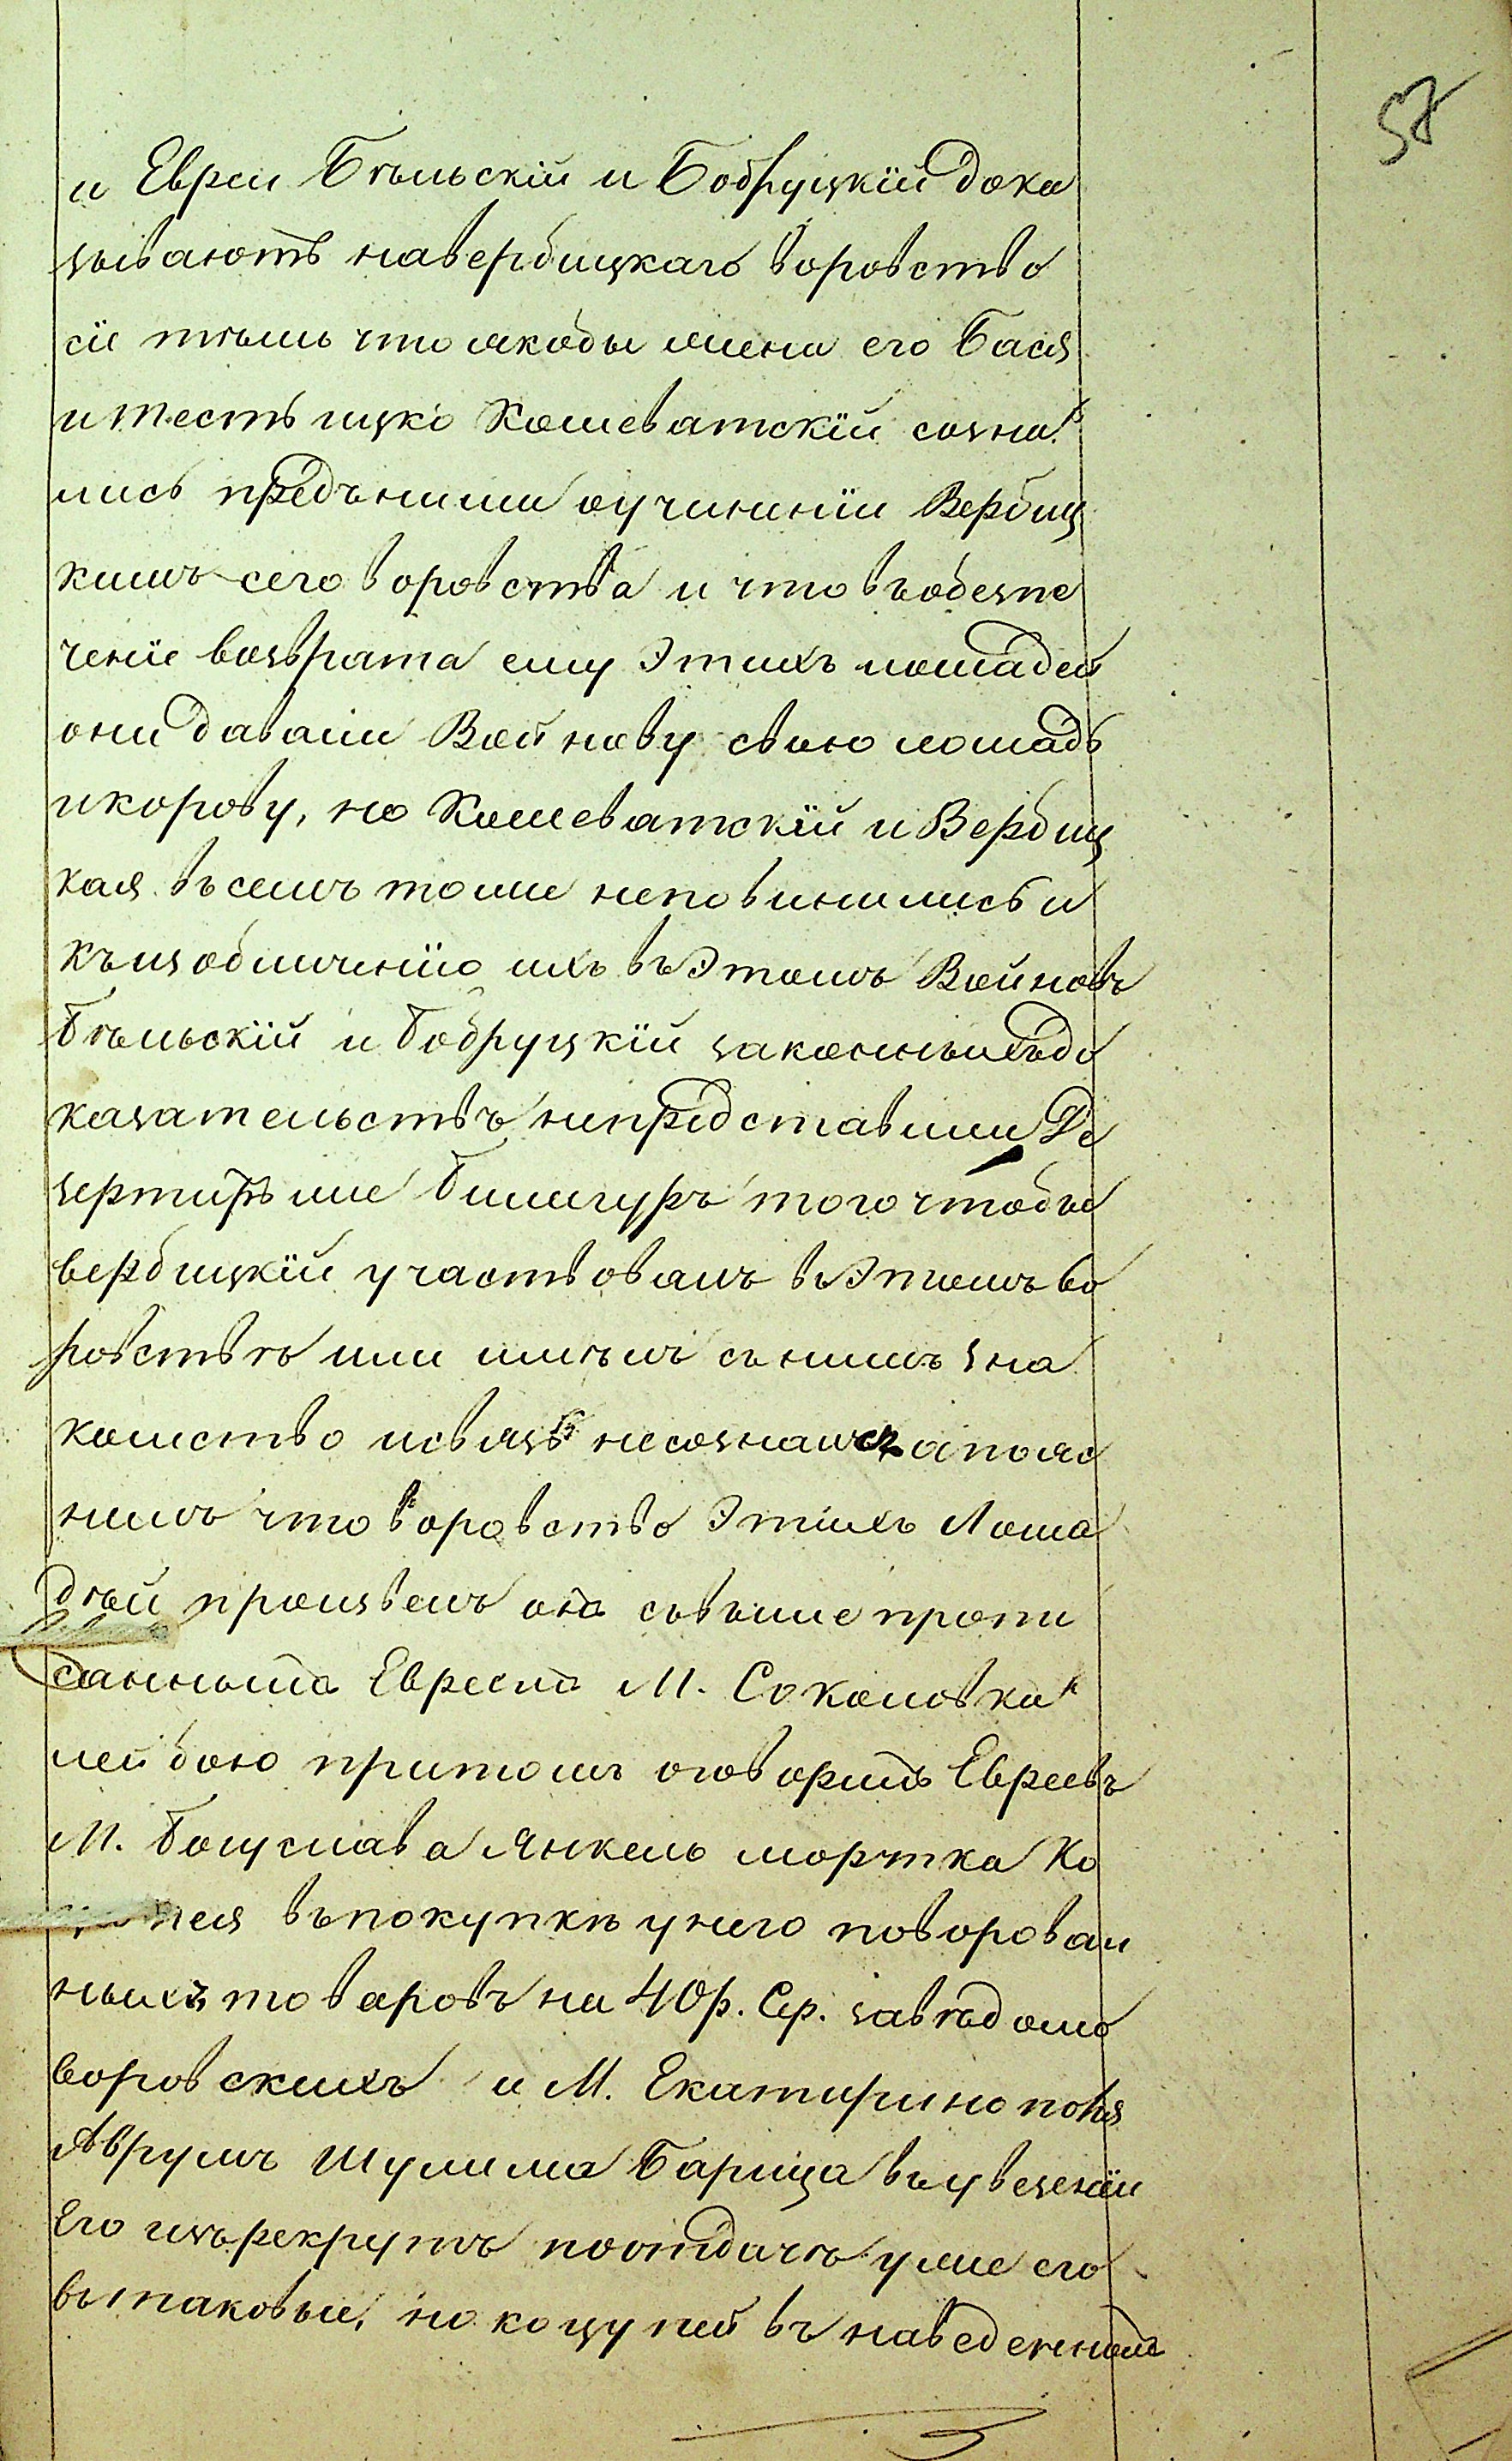 58
и Евреи Бѣльскій и Бобруцкій дока
зываютъ навербицкаго воровство
сіе тѣмъ что якобы жена его Бася
и тесть ицко Кошеватскій созна
лись предъними оучиненіи Вербиц
кимъ сего воровства и что въобезпе
ченіе возврата ему Этихъ лошадей
они давали Войнову свою лошадь
и корову, но Кошеватскій и Вербиц
кая въсемъ тоже неповинились и
къизобличенію ихъ въЭтомъ Войновъ
Бѣльскій и Бобруцкій законныхъдо
казательствъ непредставили Де
зертиръ же Билигуръ того чтобы
вербицкій участвовалъ въЭтомъ во
ровствѣ или имѣлъ сънимъ зна
комство исвязь несозналса апояс
нилъ что воровство Этихъ Лоша
дѣй произвелъ онъ свыше пропи
саннымъ Евреемъ М. Соколовка
лейбою притомъ оговоритъ Евреевъ
М. Богуслава Янкель мортка Ко
цупея въпокупкѣ унего поворован
ныхъ товаровъ на 40 р. Сер. завѣдомо
воровскихъ и М. Екатиринополя
Аврумъ Шулима Барица въувезеніи
Его изърекрутъ поотдачѣ уже его
въ таковые, но коцупей въ наведенномъ